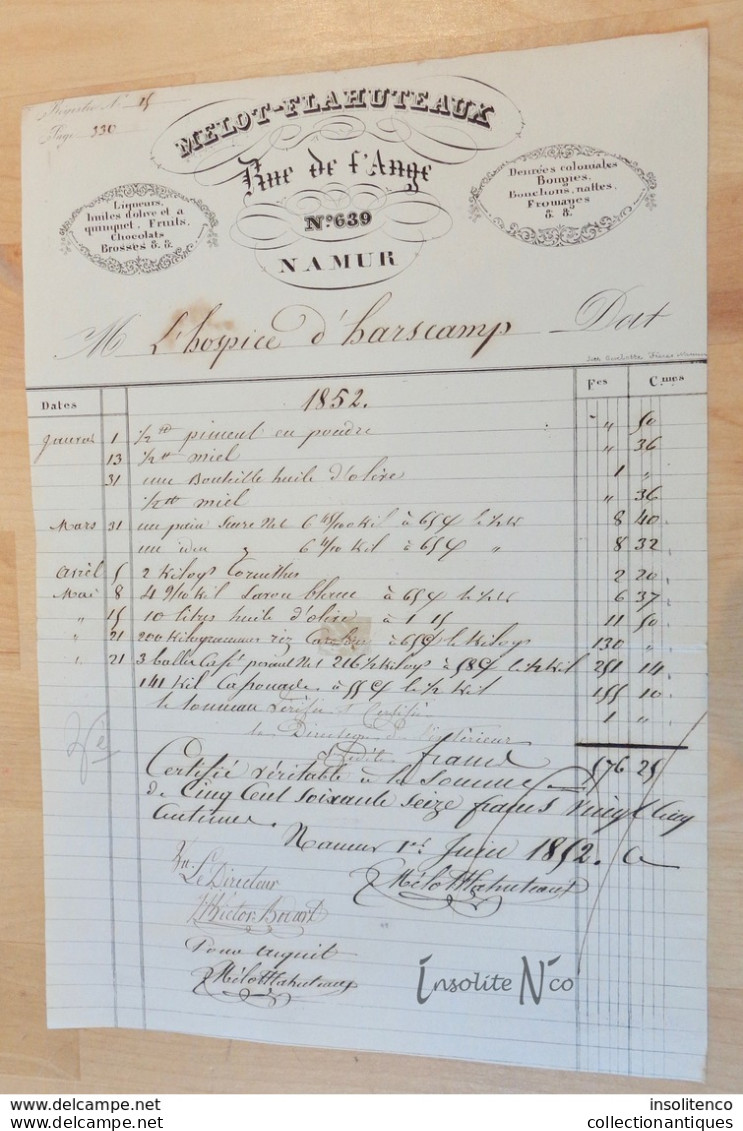 Registre N° 15
Page 330
MELOT-FLAHUTEAUX
Rue de l'Ange
N° 639
NAMUR
Liqueurs,
huiles d'olive et a
quinquet, Fruits,
Chocolats
Brosses &. &.
Denrées coloniales
Bougies,
Bouchons, nattes,
Fromages
& &a
M L'hospice d'harscamp Doit
Dates Fcs Cmes
1852.
Janvier 1 1/2 piment en poudre " 50
13 1/2 miel " 36
31 une Bouteille huile d'olive 1 "
1/2 miel " 36
Mars 31 un pain Sucre Net 6 Kil à 65 le 1/2 K 8 40
un idem 6 Kil à 65 " 8 32
Avril 5 2 Kilogs Corinthes 2 20
Mai 8 4 9/10 kil Savon bleue à 65 le 1/2 K 6 37
" 15 10 litres huile d'olive à 1 15 11 50
" 21 200 Kilogrammes riz à 65 le Kilog 130 "
" 21 3 balles Café pesant Net 216 1/2 Kilogs à 58 le 1/2 Kil 251 14
141 Kil Cassonade à 55 le 1/2 Kil 155 10
le tonneau 1 "
Vérifié & Certifié
le Directeur de l'intérieur
francs 576 25
Certifié véritable à la Somme
de Cinq Cent Soixante Seize francs Vingt Cinq
Centimes.
Namur 1er Juin 1852.
Vu Le Directeur
Mélot Flahuteaux
Pour acquit
Mélot Flahuteaux
Insolite N'co
© insolitenco
http://www.collectionantiques.com